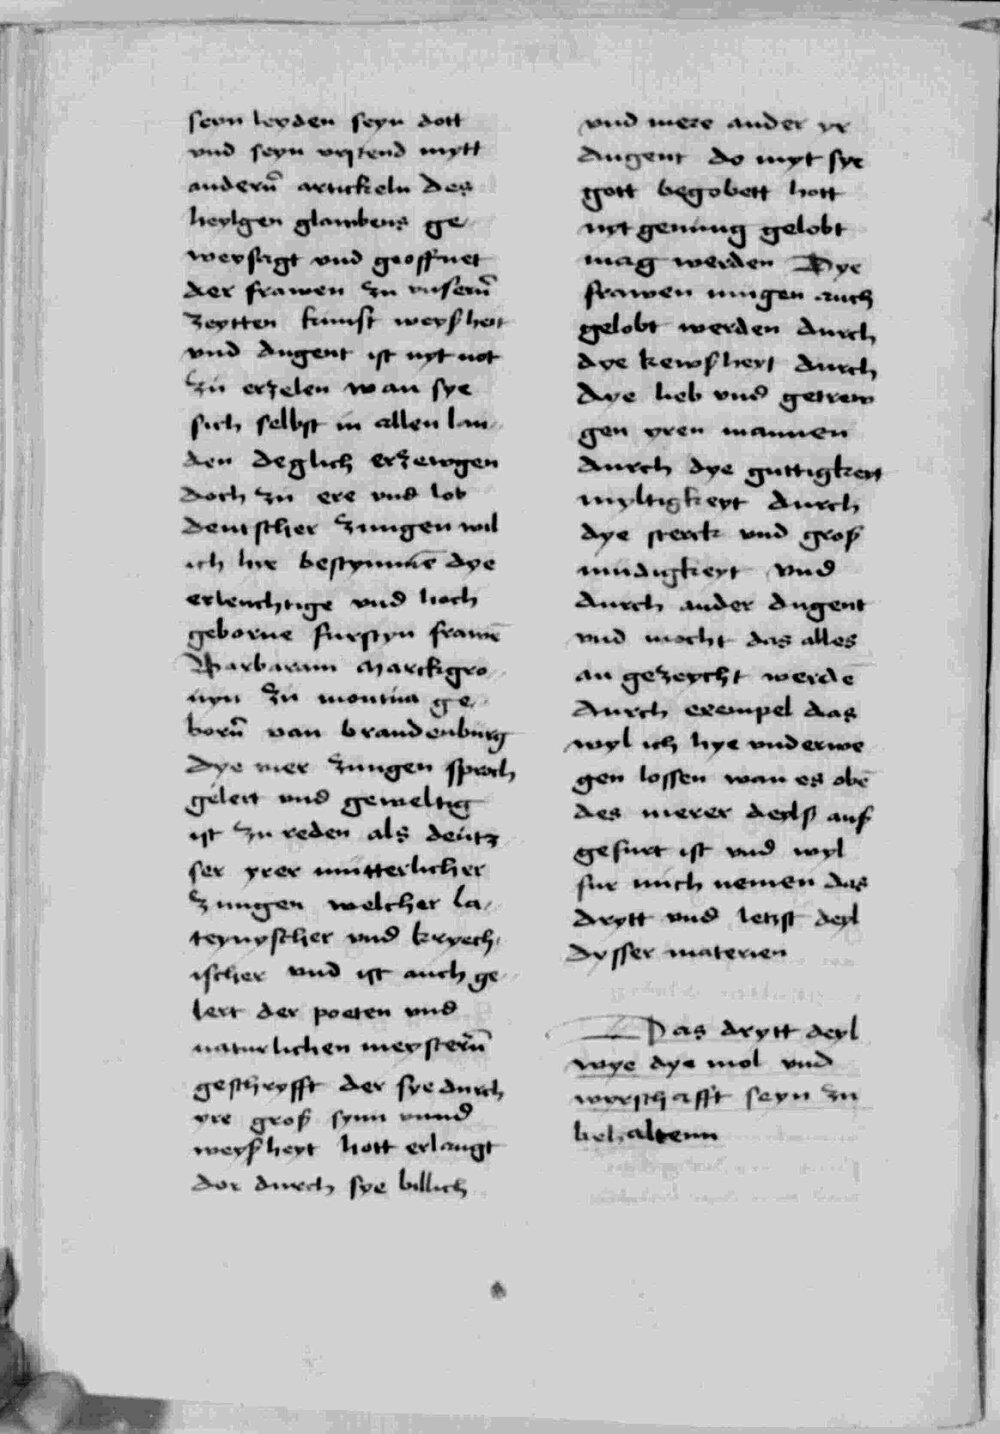 seyn leyden seyn dott
vnd seyn vrstend mytt
andern̄ artickeln des
heylgen glawbens ge
weyssagt vnd geoffnet
der frawen zu vnsern̄
zeytten kunst weyßheit
vnd dugent ist nyt not
zu erzelen wan sye
sich selbst in allen lan
den deglich erzewgen
doch zu ere vnd lob
deutscher zungen wil
ich hie bestymmē dye
erleuchtige vnd hoch
geborne furstyn frawē
Barbaram Marckgro
uyn zu montua ge
born̄ van brandenburg
dye vier zungen sproch
gelert vnd geweltig
ist zu reden als deutz
ser yrer mutterlicher
zungen welcher la
teynyscher vnd kryech
ischer vnd ist auch ge
lert der poeten vnd
naturlichen meystern̄
geschryfft der sye durch
yre groß synn vnnd
weyßheyt hott erlangt
dor durch sye billich
vnd mere ander yr
dugent do myt sye
gott begobett hott
nyt genung gelobt
mag werden Dye
frawen mugen auch
gelobt werden durch
dye kewßheyt durch
dye lieb vnd getrew
gen yren mannen
durch dye guttigkeit
myltigkeyt durch
dye sterck vnd groß
mudigkeyt vnd
durch ander dugent
vnd mocht das alles
an gezeycht werdē
durch exempel das
wyl ich hye vnderwe
gen lossen wan es obē
des merer deylß auß
gefurt ist vnd wyl
fur mich nemen das
drytt vnd letzst deyl
dysser materien
Das drytt deyl
wye dye mol vnd
wyrschafft seyn zu
behaltenn